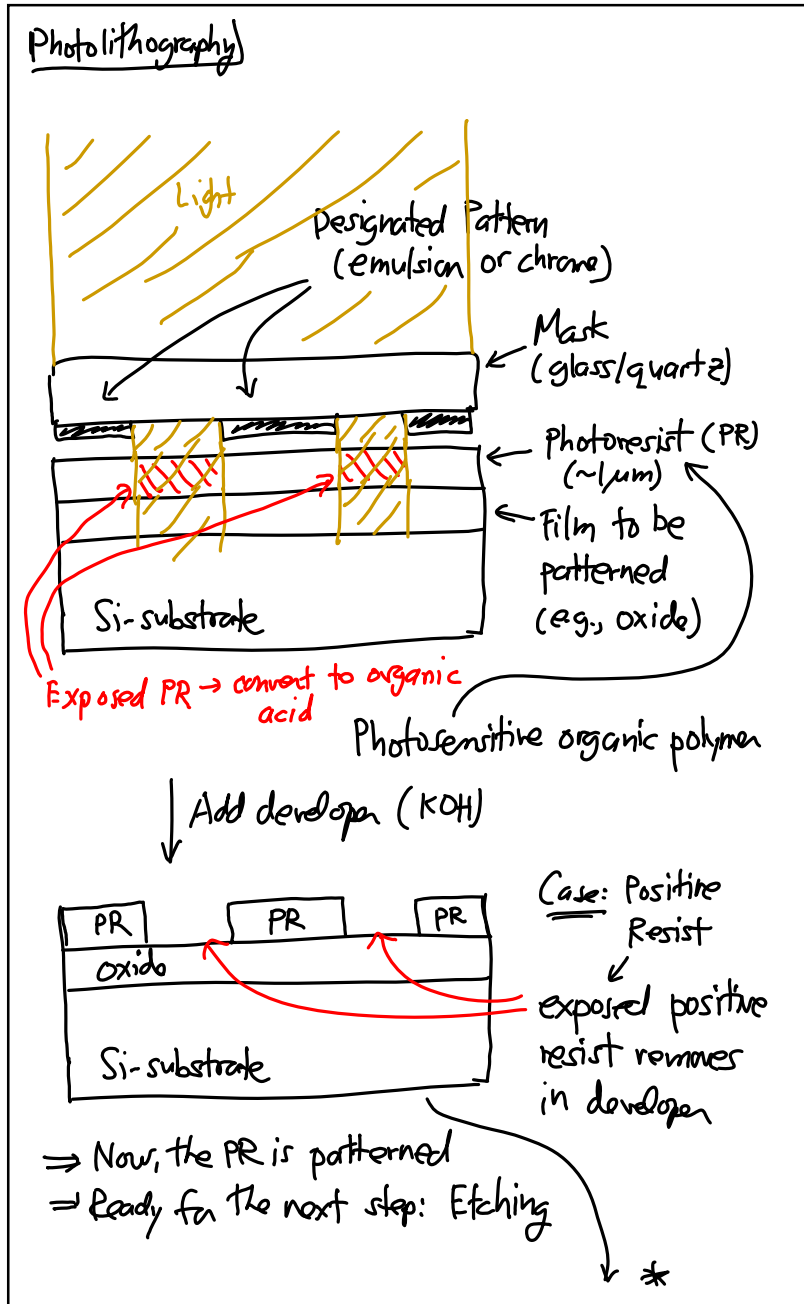 Photolithography
Light
Designated Pattern
(emulsion or chrome)
Mask
(glass/quartz)
Photoresist (PR)
(~1μm)
Film to be
patterned
(e.g., oxide)
Si-substrate
Exposed PR → convert to organic
acid
Photosensitive organic polymer
Add developer (KOH)
Case: Positive
Resist
PR
PR
PR
oxide
exposed positive
resist removes
in developer
Si-substrate
⇒ Now, the PR is patterned
⇒ Ready for the next step: Etching
*